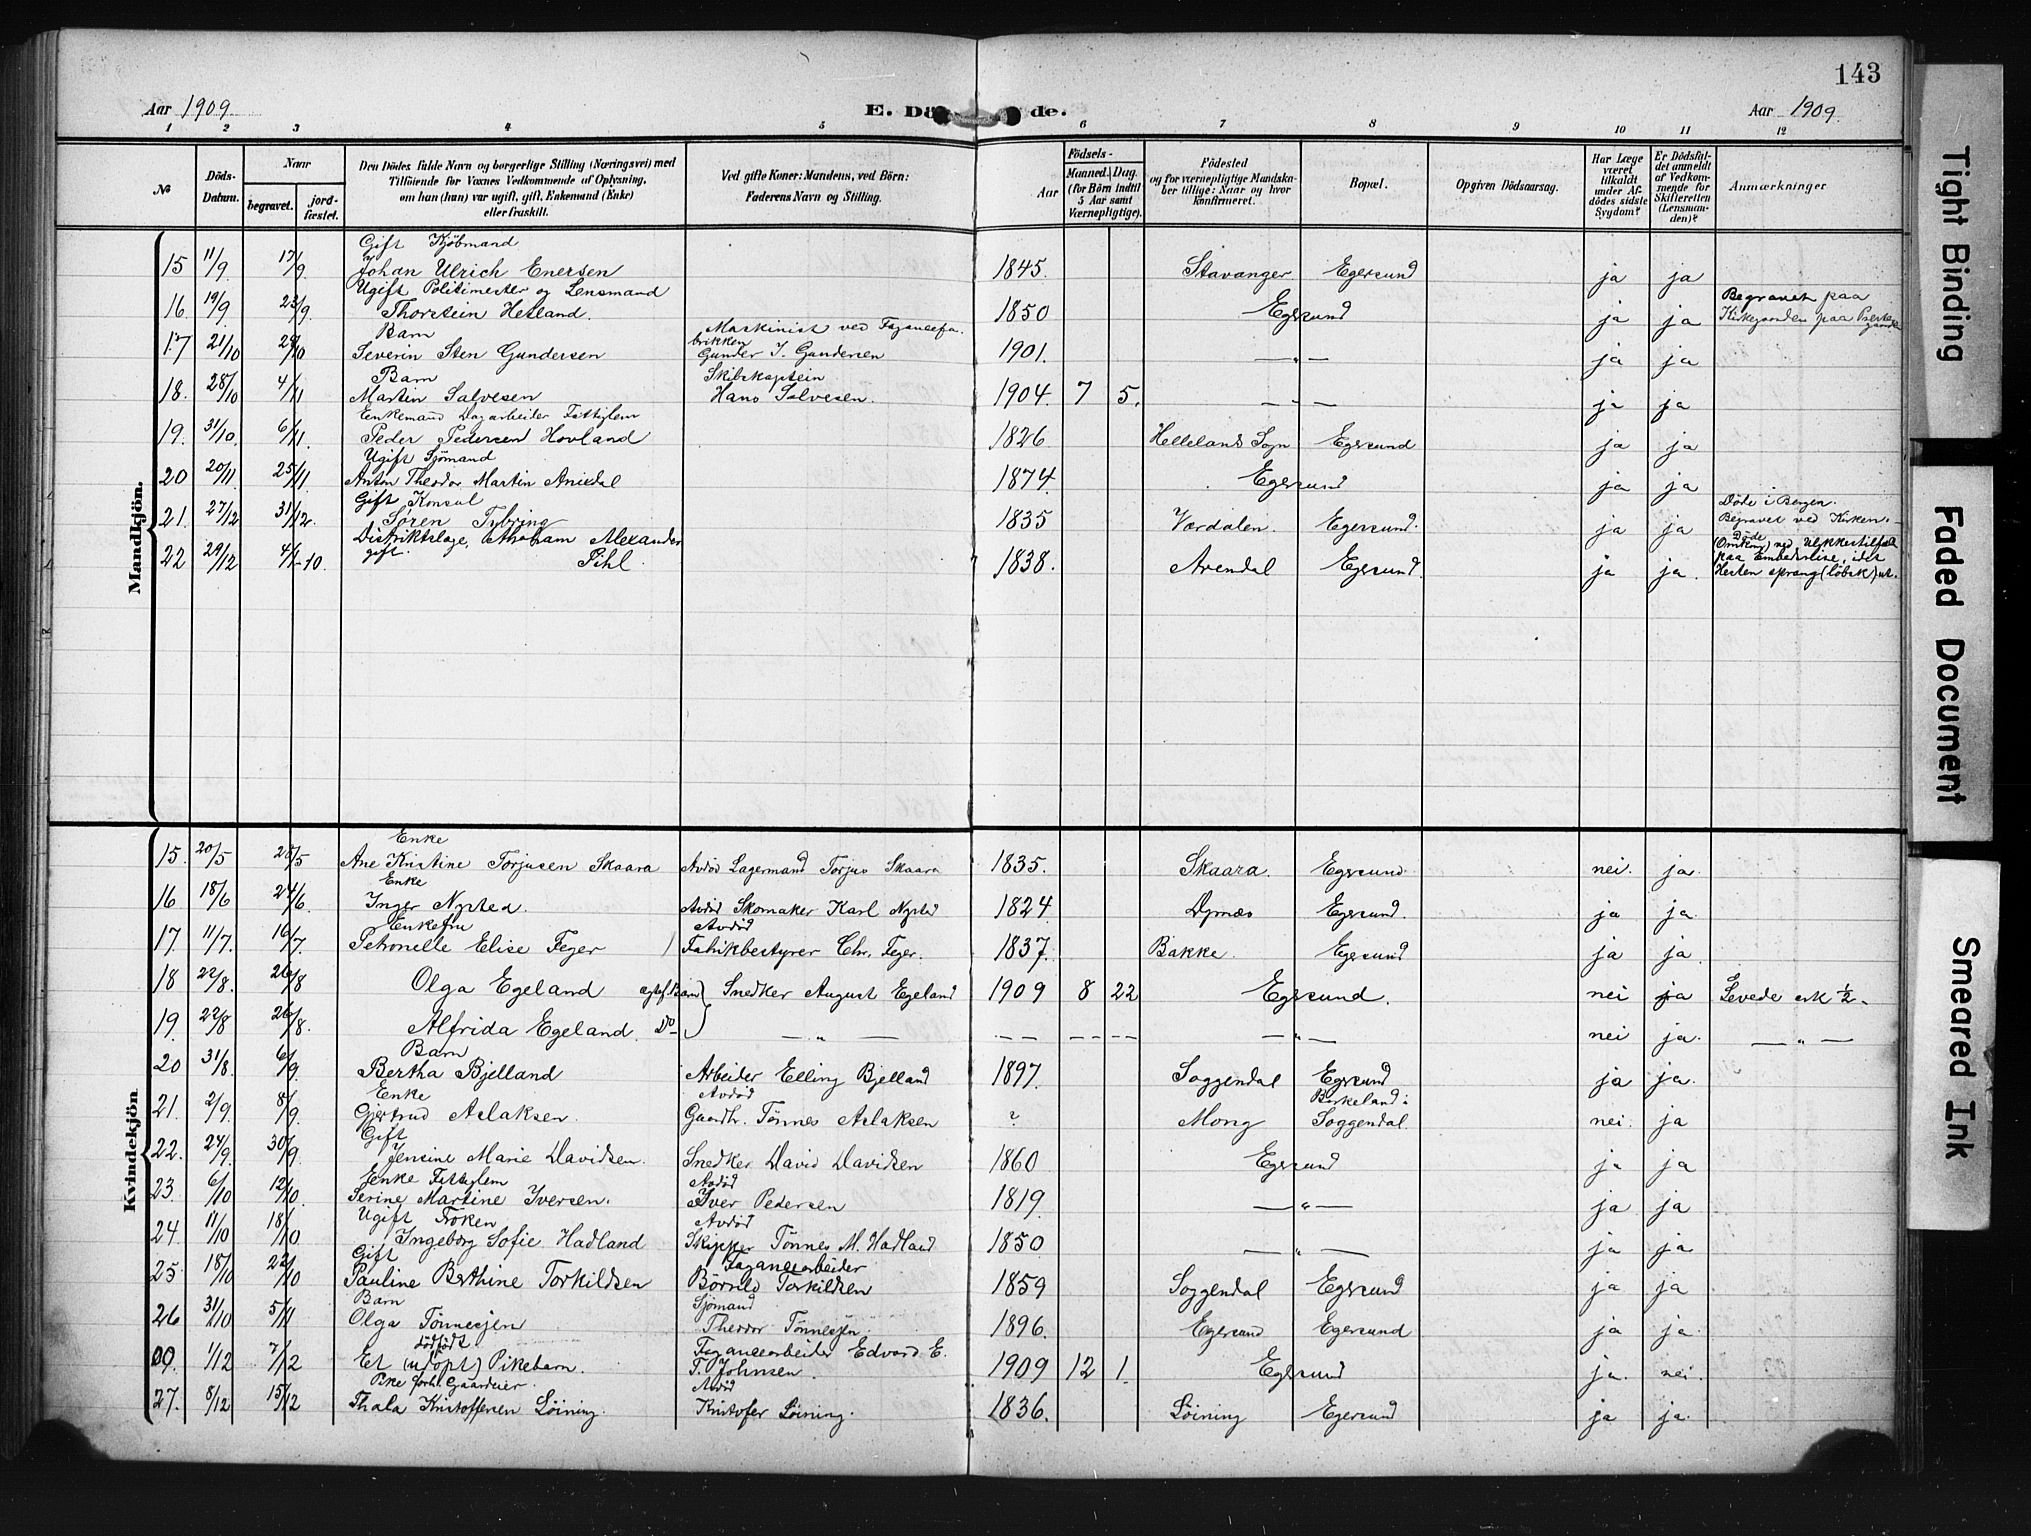 143
Aar 1909.
E. Dö
de.
Aar 1909.
1 2 3 4 5 6 7 8 9 10 11 12
№
Döds-
Datum.
Naar
begravet.
jord-
fæstet.
Den Dödes fulde Navn og borgerlige Stilling (Næringsvei) med
Tilföiende for Voxnes Vedkommende af Oplysning,
om han (hun) var ugift, gift, Enkemand (Enke)
eller fraskilt.
Ved gifte Koner: Mandens, ved Börn:
Faderens Navn og Stilling.
Födsels-
Aar
Maaned. Dag.
(for Börn indtil
5 Aar samt
Værnepligtige).
Födested
og for værnepligtige Mandska-
ber tillige: Naar og hvor
konfirmeret.
Bopæl.
Opgiven Dödsaarsag.
Har Læge
været
tilkaldt
under Af-
dödes sidste
Sygdom?
Er Dödsfal-
det anmeldt
af Vedkom-
mende for
Skifteretten
(Lensman-
den)?
Anmærkninger
Mandkjön.
Gift Kjöbmand
15 11/9 17/9 Johan Ulrich Enersen 1845. Stavanger Egersund ja ja
Ugift Politimester og Lensmand
16 19/9 23/9 Thorstein Hetland. 1850 Egersund ja ja Begravet paa
Kirkegaarden paa
Barn Maskinist ved Fayancefa-
brikken
17 21/10 29/10 Severin Sten Gundersen Gunder I. Gundersen 1901. —„— ja ja
Barn Skibskaptein
18. 28/10 4/11 Martin Salvesen Hans Salvesen. 1904. 7 5. —„— ja ja
Enkemand Dagarbeider Fattiglem
19. 31/10. 6/11. Peder Pedersen Hovland 1826 Hellelands Sogn Egersund ja ja
Ugift Sjömand
20 20/11. 25/11 Anton Theodor Martin Anisdal 1874. Egersund ja ja
Gift Konsul
21. 27/12 31/12. Sören Tybring 1835 Værdalen. Egersund. ja ja Döde i Bergen.
Begravet ved Kirken.
Distriktslæge, Abraham Alexander
gift.
22 29/12 4/1-10. Pihl 1838. Arendal Egersund. ja ja. Döde
(Omkom) ved Ulykkestilfælde
paa Embedsreise, idet
Hesten sprang (löbsk) ut.
Kvindekjön
Enke
15. 20/5 28/5 Ane Kristine Torjusen Skaara Avdöd Lagermand Torjus Skaara 1835. Skaara. Egersund. nei. ja.
Enke
16 18/6 24/6. Inger Nysted. Avdöd Skomaker Karl Nysted 1824 Dypnæs Egersund. ja ja.
Enkefru Avdöd
17 11/7. 16/7 Petronelle Elise Feyer Fabrikbestyrer Chr. Feyer. 1837. Bakke. Egersund ja ja.
18 22/8. 26/8 Olga Egeland Barn Snedker August Egeland 1909 8 22 Egersund. nei ja Levede ctk ½.
19. 22/8 26/8. Alfrida Egeland. Do —„— — — — —„— nei ja. —„—
Barn
20 31/8. 6/9 Bertha Bjelland Arbeider Elling Bjelland 1897. Soggendal Egersund ja ja.
Enke Avdöd Birkeland i
21. 2/9. 8/9 Gjertrud Aslaksen. Gaardbr. Tönnes Aslaksen ? Mong Soggendal. nei. ja
Gift
22. 24/9. 30/9 Jensine Marie Davidsen. Snedker David Davidsen 1860 Egersund ja ja
Enke Fattiglem Avdöd
23. 6/10 12/10. Serine Martine Iversen. Iver Pedersen 1819. —„— ja ja
Ugift Fröken Avdöd
24 11/10 18/10 Ingeborg Sofie Hadland Skipper Tönnes M. Hadland 1850 —„— ja ja
Gift Fayancearbeider
25 18/10 22/10 Pauline Berthine Torkildsen Börnild Torkildsen 1859 Soggendal Egersund ja ja
Barn Sjömand
26 31/10 5/11 Olga Tönnesjen Theodor Tönnesjen. 1896. Egersund Egersund ja ja.
dödfödt Fayancearbeider Edvard E.
00. 1/12 7/12 Et (udöpt) Pikebarn. T. Johnsen. 1909 12 1. Egersund ja. nei.
Pike forh. Avdöd
27. 8/12 15/12 Thala Kristoffersen Löining. Kristofer Löining. 1836. Löining Egersund ja ja.
Tight Binding
Faded Document
Smeared Ink